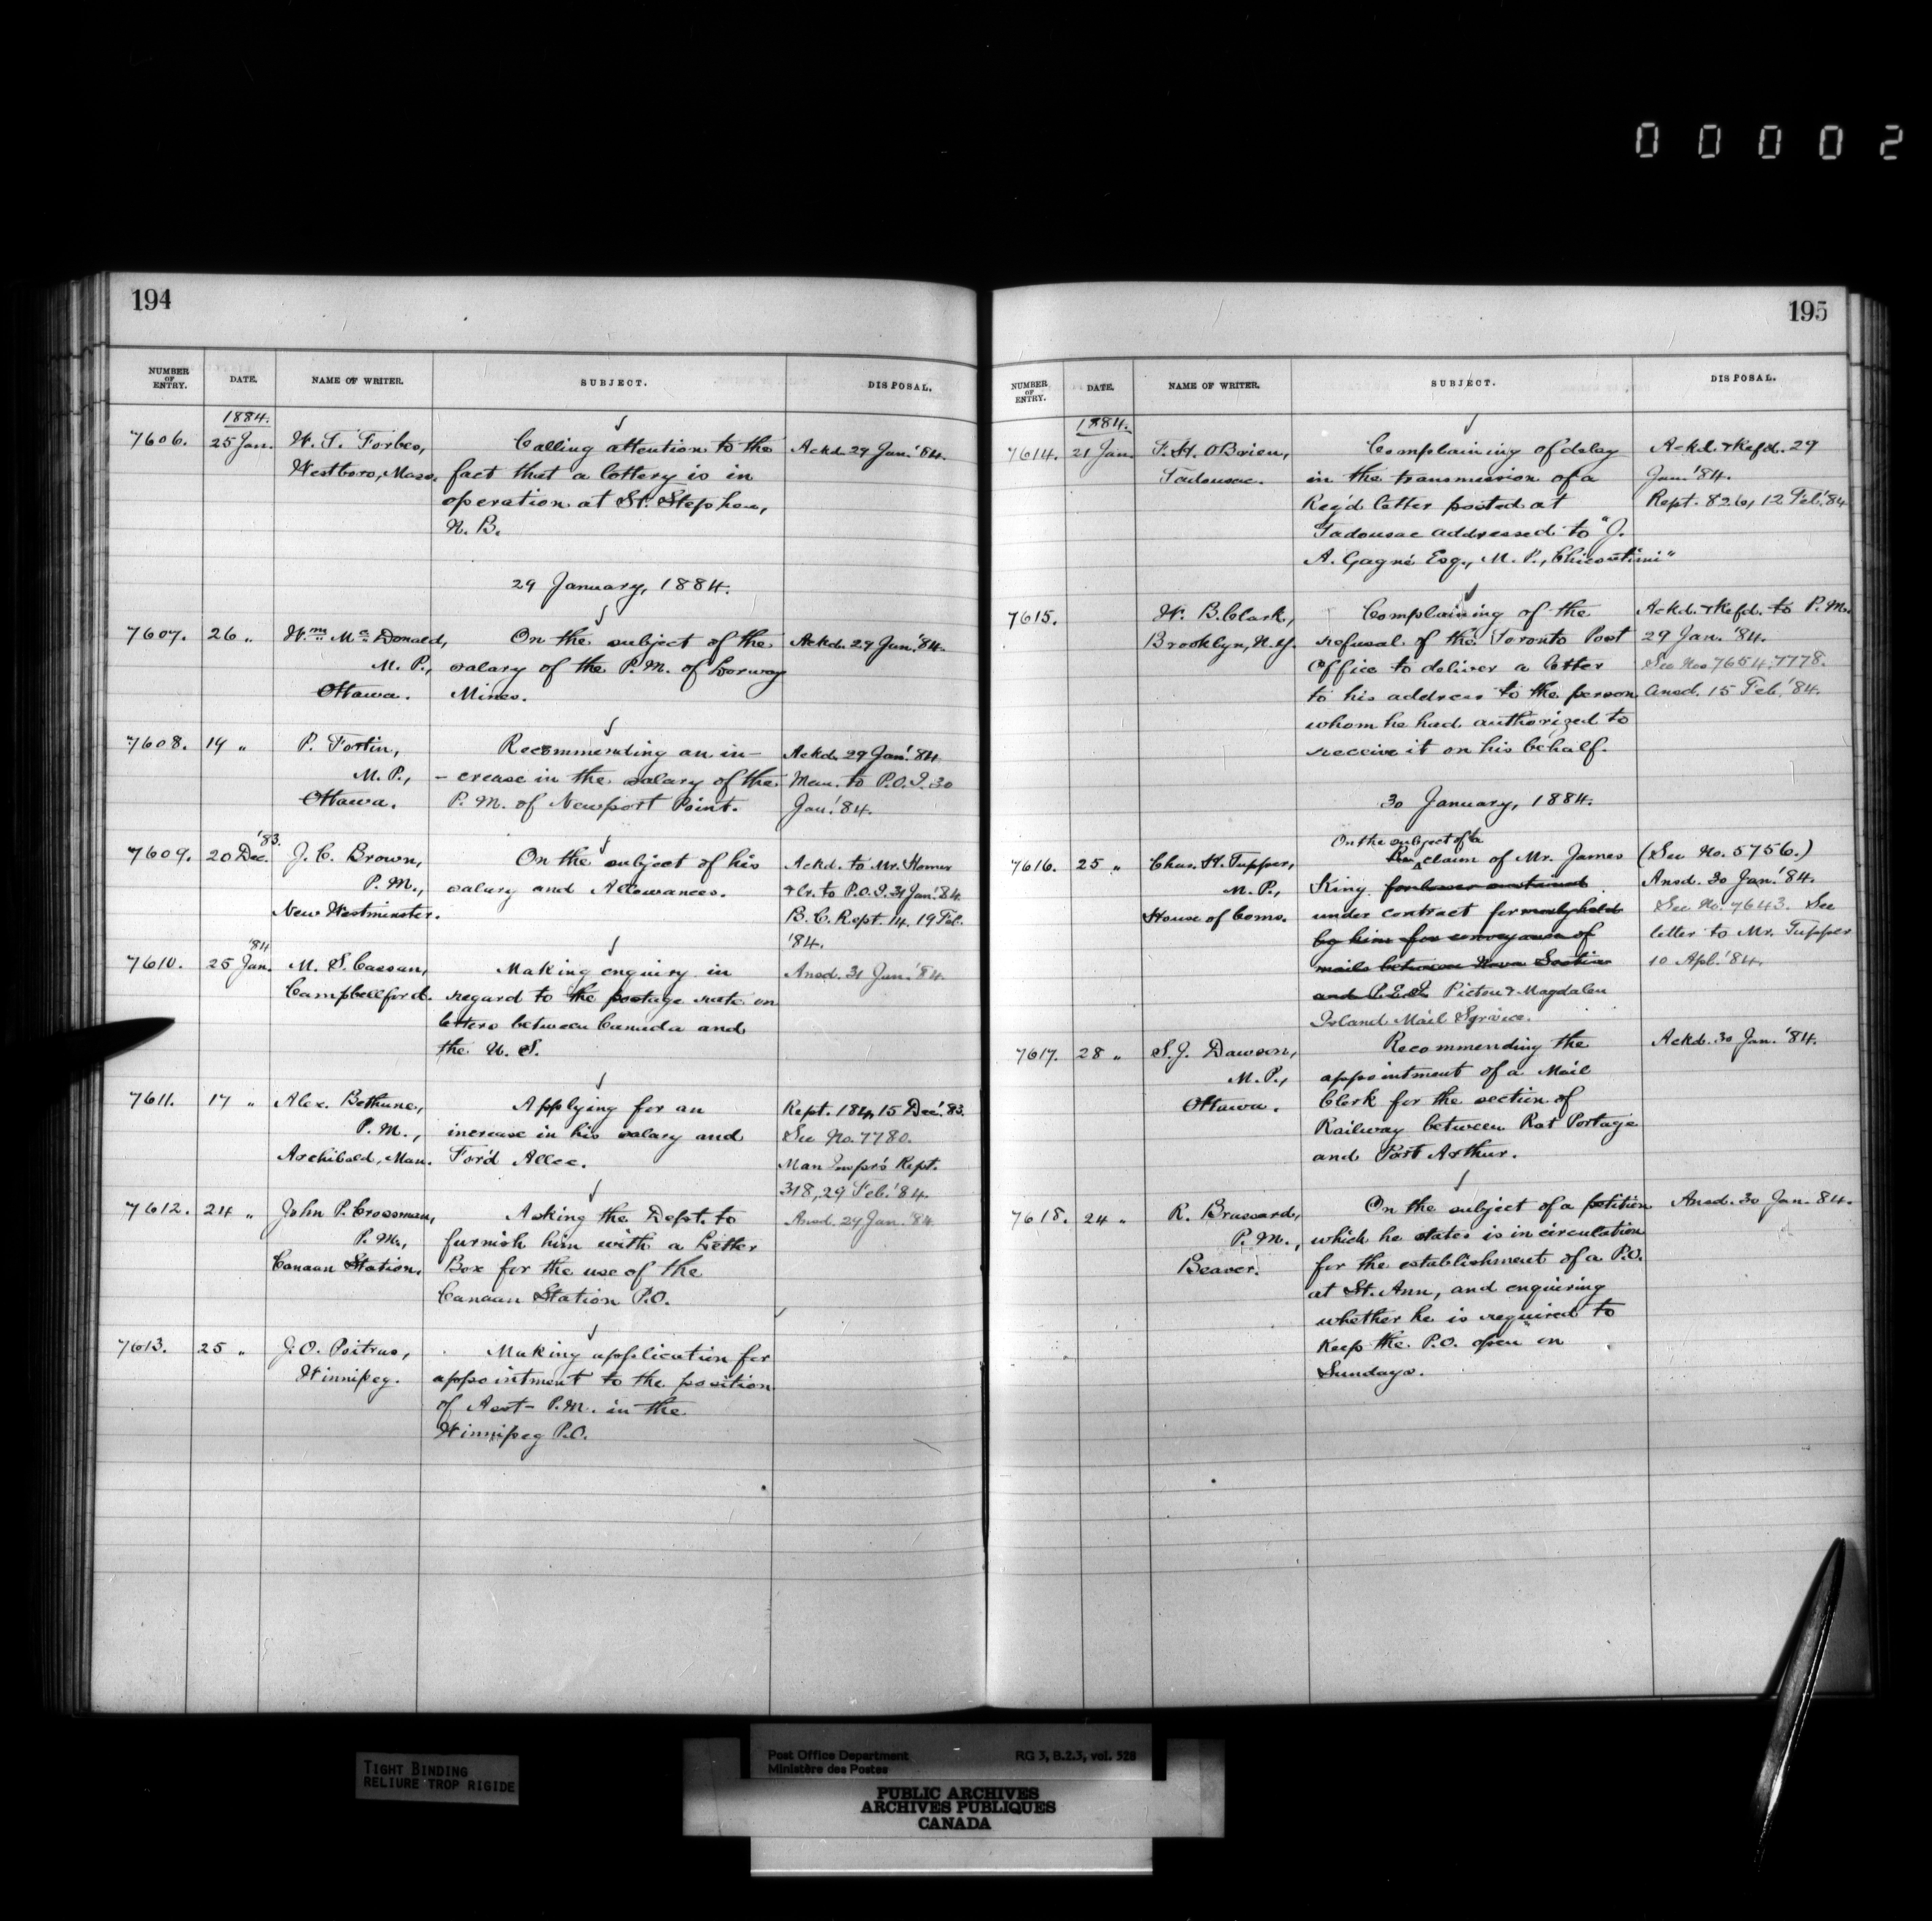 00002
194
NUMBER OF ENTRY. DATE. NAME OF WRITER. SUBJECT. DISPOSAL.
1884.
7606. 25 Jan. W. S. Forbes, Calling attention to the Ackd. 29 Jan. '84.
Westboro, Mass. fact that a lottery is in
operation at St. Stephen,
N. B.
29 January, 1884.
7607. 26 " Wm. Mc Donald, On the subject of the Ackd. 29 Jan. '84.
M. P., salary of the P.M. of Lorway
Ottawa. Mines.
7608. 19 " P. Fortin, Recommending an in- Ackd. 29 Jan. '84.
M. P., - crease in the salary of the Mem. to P.O.I. 30
Ottawa. P. M. of Newport Point. Jan. '84.
7609. 20 Dec. '83. J. C. Brown, On the subject of his Ackd. to Mr. Homer
P. M., salary and Allowances. & Cr. to P.O.I. 31 Jan. '84.
New Westminster. B. C. Rept. 14, 19 Feb.
'84.
7610. 25 Jan. '84 M. S. Cassan, Making enquiry in Ansd. 31 Jan. '84.
Campbellford. regard to the postage rate on
letters between Canada and
the U. S.
7611. 17 " Alex. Bethune, Applying for an Rept. 184, 15 Dec. '83.
P. M., increase in his salary and See No. 7780.
Archibald, Man. For'd Allce. Man Inspr's Rept.
318, 29 Feb. '84.
7612. 24 " John P. Crossman, Asking the Dept. to Ansd. 29 Jan. '84.
P. M., furnish him with a Letter
Canaan Station. Box for the use of the
Canaan Station P.O.
7613. 25 " J. O. Poitras, Making application for
Winnipeg. appointment to the position
of Asst- P.M. in the
Winnipeg P.O.
195
NUMBER OF ENTRY. DATE. NAME OF WRITER. SUBJECT. DISPOSAL.
1884.
7614. 21 Jan. F. H. OBrien, Complaining of delay Ackd. & Refd. 29
Tadousac. in the transmission of a Jan. '84.
Reg'd letter posted at Rept. 826, 12 Feb. '84
Tadousac addressed to "J.
A. Gagné Esq., M. P., Chicoutimi"
7615. W. B. Clark, Complaining of the Ackd. & Refd. to P.M.
Brooklyn, N.Y. refusal of the Toronto Post 29 Jan. '84.
Office to deliver a letter See Nos 7654, 7778.
to his address to the person Ansd. 15 Feb. '84.
whom he had authorized to
receive it on his behalf.
30 January, 1884.
On the subject of a
7616. 25 " Chas. H. Tupper, Re claim of Mr. James (See No. 5756.)
M. P., King for losses sustained Ansd. 30 Jan. '84.
House of Coms. under contract formerly held See No. 7643. See
by him for conveyance of letter to Mr. Tupper
mails between Nova Scotia 10 Apl. '84.
and P.E.I. Pictou & Magdalen
Island Mail Service.
7617. 28 " S. J. Dawson, Recommending the Ackd. 30 Jan. '84.
M. P., appointment of a Mail
Ottawa. Clerk for the section of
Railway between Rat Portage
and Port Arthur.
7618. 24 " R. Brassard, On the subject of a petition Ansd. 30 Jan. 84.
P. M., which he states is in circulation
Beaver. for the establishment of a P.O.
at St. Ann, and enquiring
whether he is required to
keep the P.O. open on
Sundays.
TIGHT BINDING
RELIURE TROP RIGIDE
Post Office Department RG 3, B.2.3, vol. 528
Ministère des Postes
PUBLIC ARCHIVES
ARCHIVES PUBLIQUES
CANADA